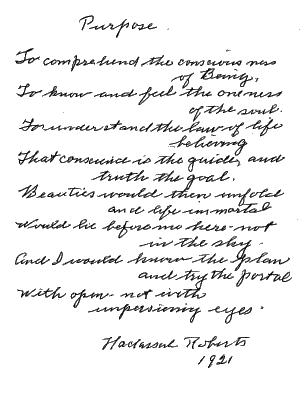 Purpose.
To comprehend the consciousness
of Being,
To know and feel the oneness
of the soul.
To understand the law of life
believing
That conscience is the guide, and
truth the goal.
Beauties would then unfold
and life immortal
Would lie before me here - not
in the sky.
And I would know the plan
and try the portal
With open - not with
unpersioning eyes.
Hadassah Roberts
1921